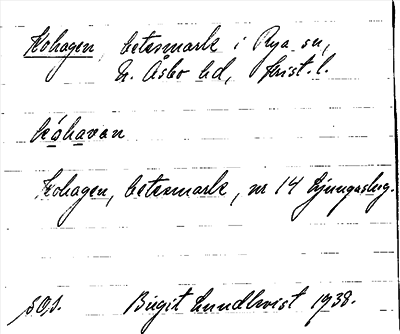 Kohagen, betesmark i Rya sn,
N. Åsbo hd, Krist. l.
kóhavan
Kohagen, betesmark, nr 14 Ljungaskog.
S.O.S. Birgit Lundkvist 1938.